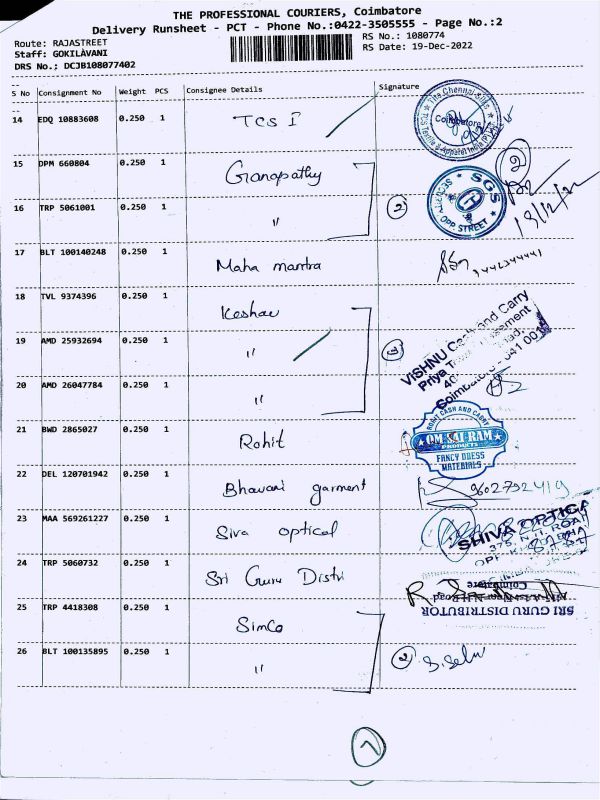 THE PROFESSIONAL COURIERS, Coimbatore
Delivery Runsheet - PCT - Phone No.:0422-3505555 - Page No.:2
Route: RAJASTREET
RS No.: 1080774
Staff: GOKILAVANI
RS Date: 19-Dec-2022
DRS No.; DCJB108077402
S No Consignment No Weight PCS Consignee Details Signature
14 EDQ 10883608 0.250 1 TCS I
The Chennai Silks
Coimbatore
TCS Textile & Apparel India (P)
15 DPM 660804 0.250 1 Ganapathy
2
SGS
SECURITY
OPP. STREET
19/12/22
16 TRP 5061001 0.250 1 "
2
17 BLT 100140248 0.250 1 Maha mantra
18 TVL 9374396 0.250 1 Keshav
VISHNU Cash and Carry
Priya
Coimbatore - 641 001
19 AMD 25932694 0.250 1 "
3
20 AMD 26047784 0.250 1 "
21 BWD 2865027 0.250 1 Rohit
ROHIT CASH AND CARRY
OM SAI RAM
PRODUCTS
FANCY DRESS
MATERIALS
22 DEL 120701942 0.250 1 Bhavani garment
9602792419
23 MAA 569261227 0.250 1 Siva optical
SHIVA OPTICA
375, N.H. ROAD
24 TRP 5060732 0.250 1 Sri Guru Distri
Coimbatore
SRI GURU DISTRIBUTOR
25 TRP 4418308 0.250 1 SimCo
26 BLT 100135895 0.250 1 "
2 S. Selv
7